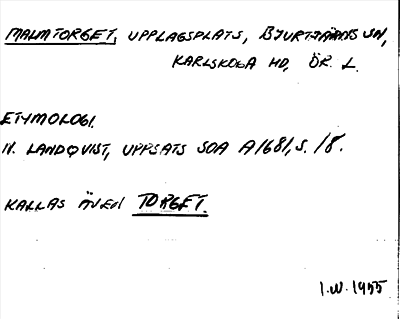 MALMTORGET, UPPLAGSPLATS, BJURTJÄRNS SN,
KARLSKOGA HD, ÖR. L.
ETYMOLOGI.
N. LANDQVIST, UPPSATS SOA A1681, S. 18.
KALLAS ÄVEN TORGET.
I.W. 1955